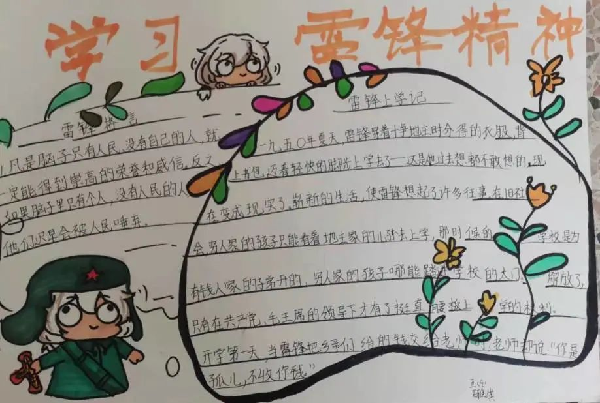 学习 雷锋精神
雷锋
凡是脑子只有人民,没有自己的人,就
一定能得到崇高的荣誉和威信。反之
如果脑子里只有个人,没有人民的人
他们迟早会被人民唾弃。
雷锋上学记
一九五〇年夏天,雷锋穿着斗争地主时分得的衣服,背
上书包,迈着轻快的脚步上学去了——这是他过去想都不敢想的。现
在变成现实了,崭新的生活,使雷锋想起了许多往事,在旧社
会,穷人家的孩子只能看着地主家的儿子去上学,那时候的学校是为
有钱人家的子弟开的,穷人家的孩子哪能踏进学校的大门。解放了,
只有在共产党,毛主席的领导下才有了
开学第一天,当雷锋把乡亲们给的钱交给老师时,老师却说:“你是
孤儿,不收你钱”